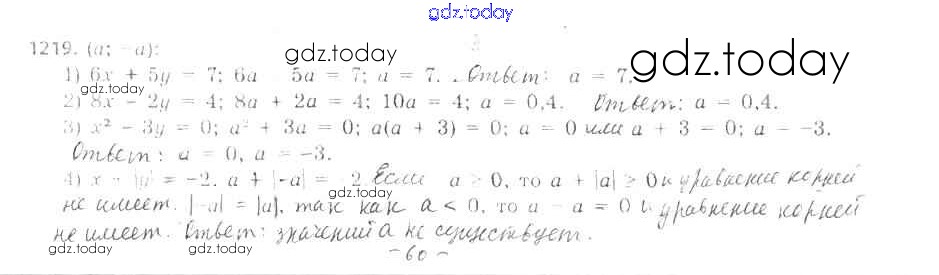 gdz.today
1219. (a; -a):
gdz.today
gdz.today
1) 6x + 5y = 7; 6a 5a = 7; a = 7. Ответ: a = 7.
gdz.today
2) 8x - 2y = 4; 8a + 2a = 4; 10a = 4; a = 0,4. Ответ: a = 0,4.
3) x² - 3y = 0; a² + 3a = 0; a(a + 3) = 0; a = 0 или a + 3 = 0; a = -3.
gdz.today
Ответ: a = 0, a = -3.
4) x + |y| = -2. a + |-a| = -2 Если a ≥ 0, то a + |a| ≥ 0 и уравнение корней
gdz.today
не имеет. |-a| = |a|, так как a < 0, то a - a = 0 и уравнение корней
не имеет. Ответ: значений a не существует.
gdz.today
- 60 -